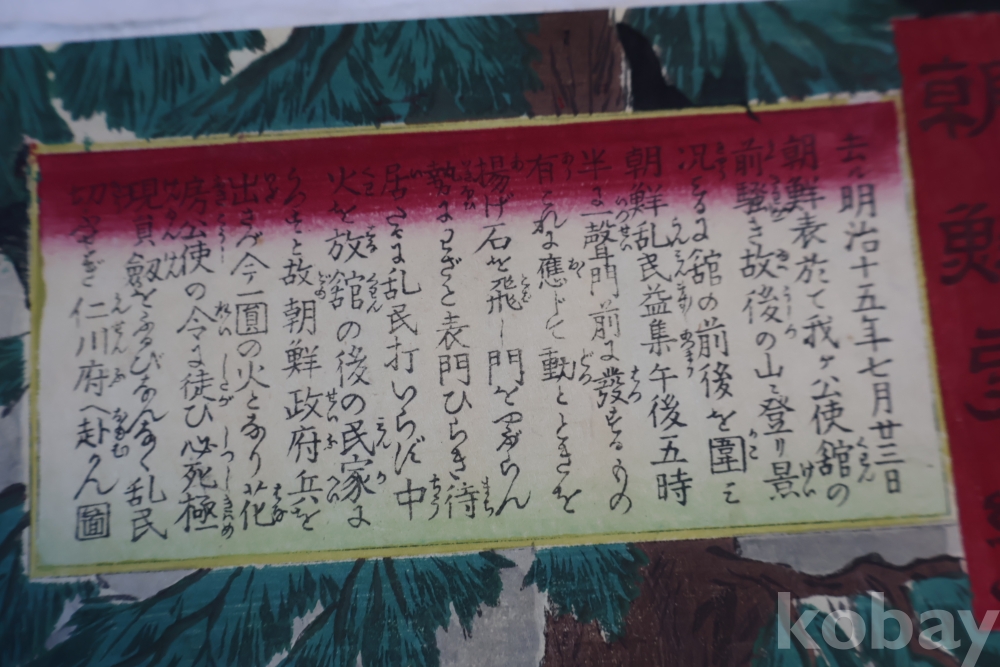 朝鮮
去ル明治十五年七月廿三日
朝鮮表於て我ヶ公使舘の
前騒き故後の山に登り景
况をるに舘の前後を圍ミ
朝鮮乱民益集午後五時
半に一聲門前に發するもの
有これに應じて動とときを
揚げ石を飛し門をやぶらん
勢にわざと表門ひらき待
居さるに乱民打いらだ中
火を放舘の後の民家に
うつすと故朝鮮政府兵を
出さべ今一圓の火となり花
房公使の令に徒ひ必死極
現員劔をふるひなんなく乱民
切ふせぎ仁川府へ赴かん圖
kobay